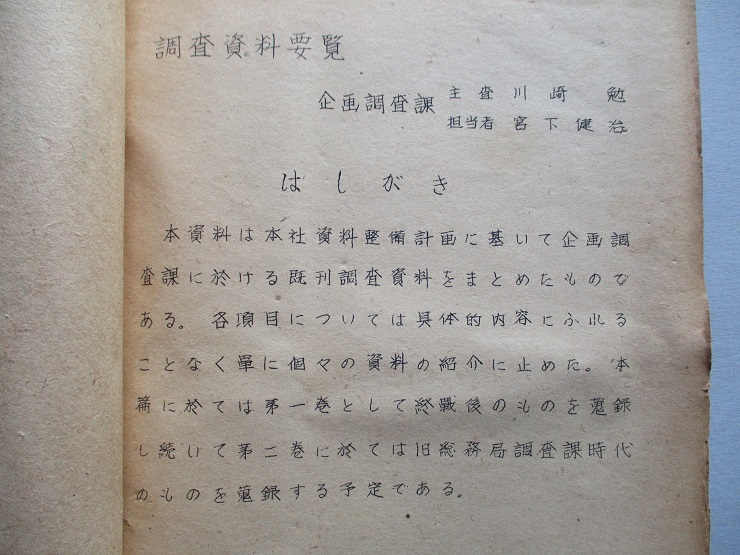 調査資料要覧
企画調査課 主査 川崎 勉
担当者 宮下健治
はしがき
本資料は本社資料整備計画に基いて企画調
査課に於ける既刊調査資料をまとめたもので
ある。各項目については具体的内容にふれる
ことなく単に個々の資料の紹介に止めた。本
篇に於ては第一巻として終戦後のものを蒐録
し続いて第二巻に於ては旧総務局調査課時代
のものを蒐録する予定である。